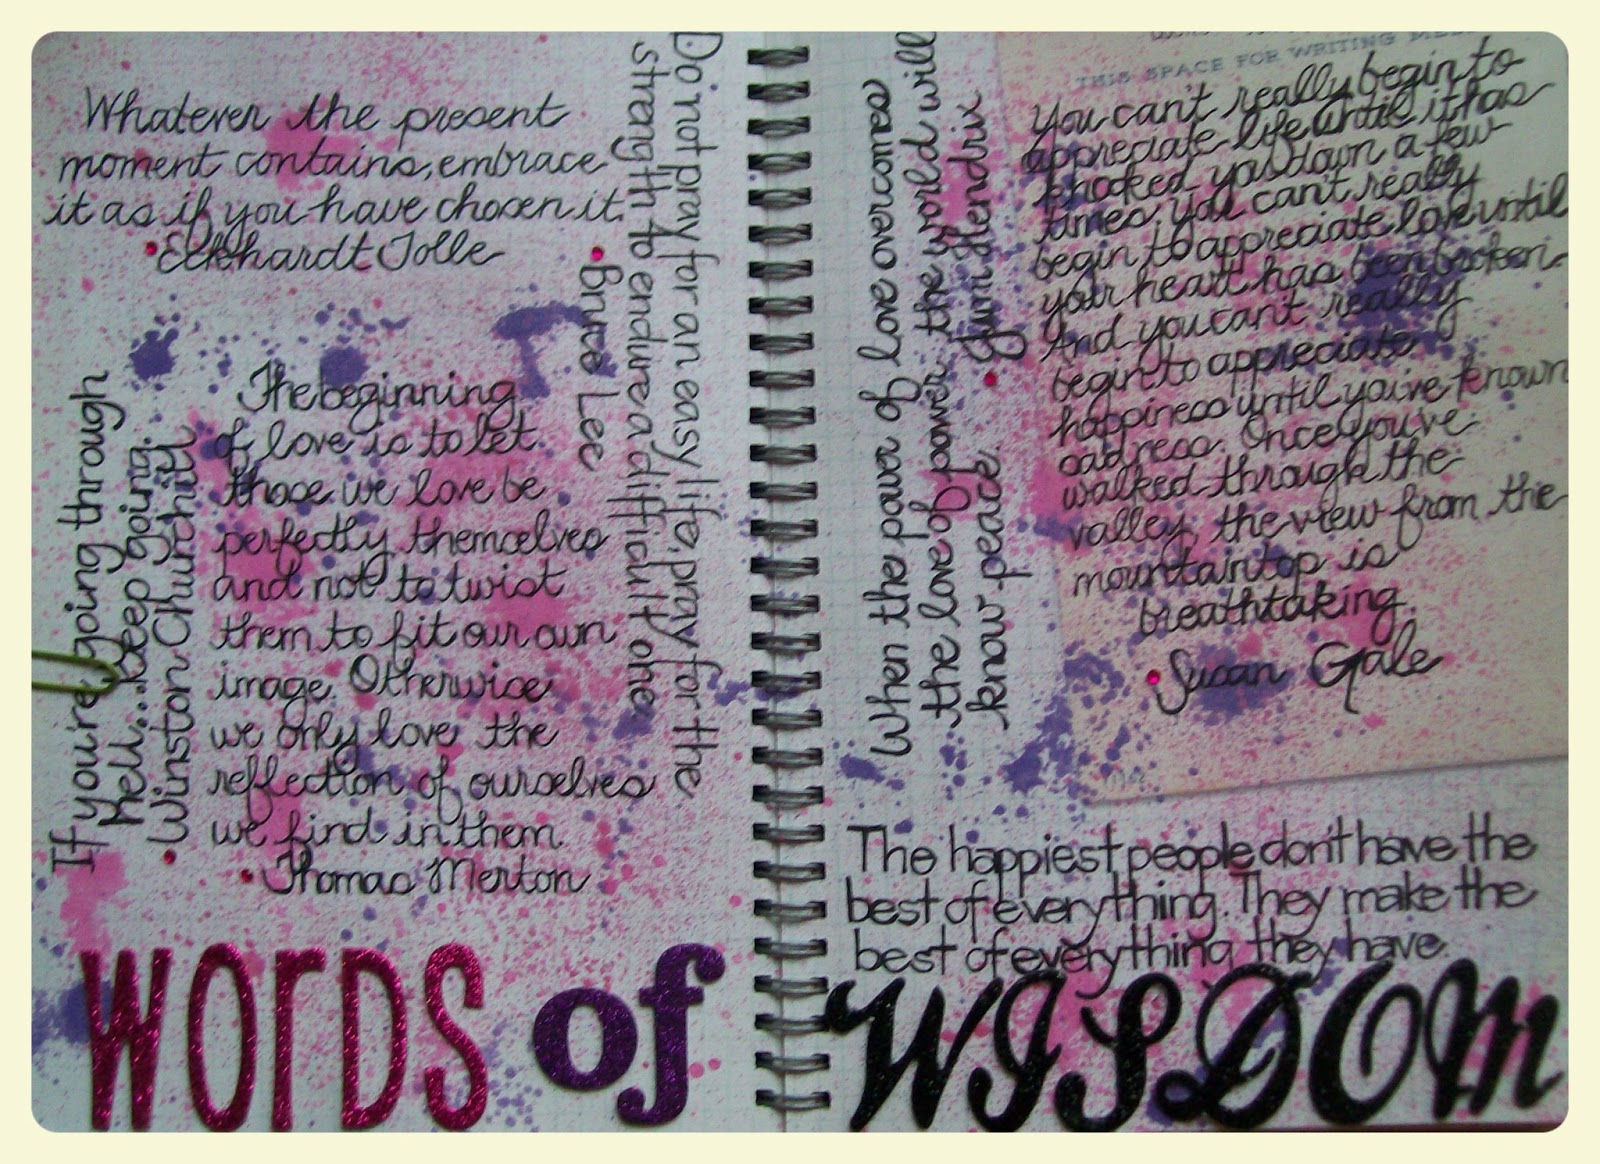 Whatever the present
moment contains, embrace
it as if you have chosen it.
Eckhardt Tolle
Do not pray for an easy life, pray for the
strength to endure a difficult one.
Bruce Lee
If you're going through
hell...keep going.
Winston Churchill
The beginning
of love is to let
those we love be
perfectly themselves
and not to twist
them to fit our own
image. Otherwise
we only love the
reflection of ourselves
we find in them
Thomas Merton
words of
When the power of love overcomes
the love of power the world will
know peace.
Jimi Hendrix
THIS SPACE FOR WRITING
You can't really begin to
appreciate life until it has
knocked you down a few
times you can't really
begin to appreciate love until
your heart has been broken
And you can't really
begin to appreciate
happiness until you've known
sadness. Once you've
walked through the
valley, the view from the
mountaintop is
breathtaking.
Susan Gale
The happiest people don't have the
best of everything. They make the
best of everything they have.
WISDOM